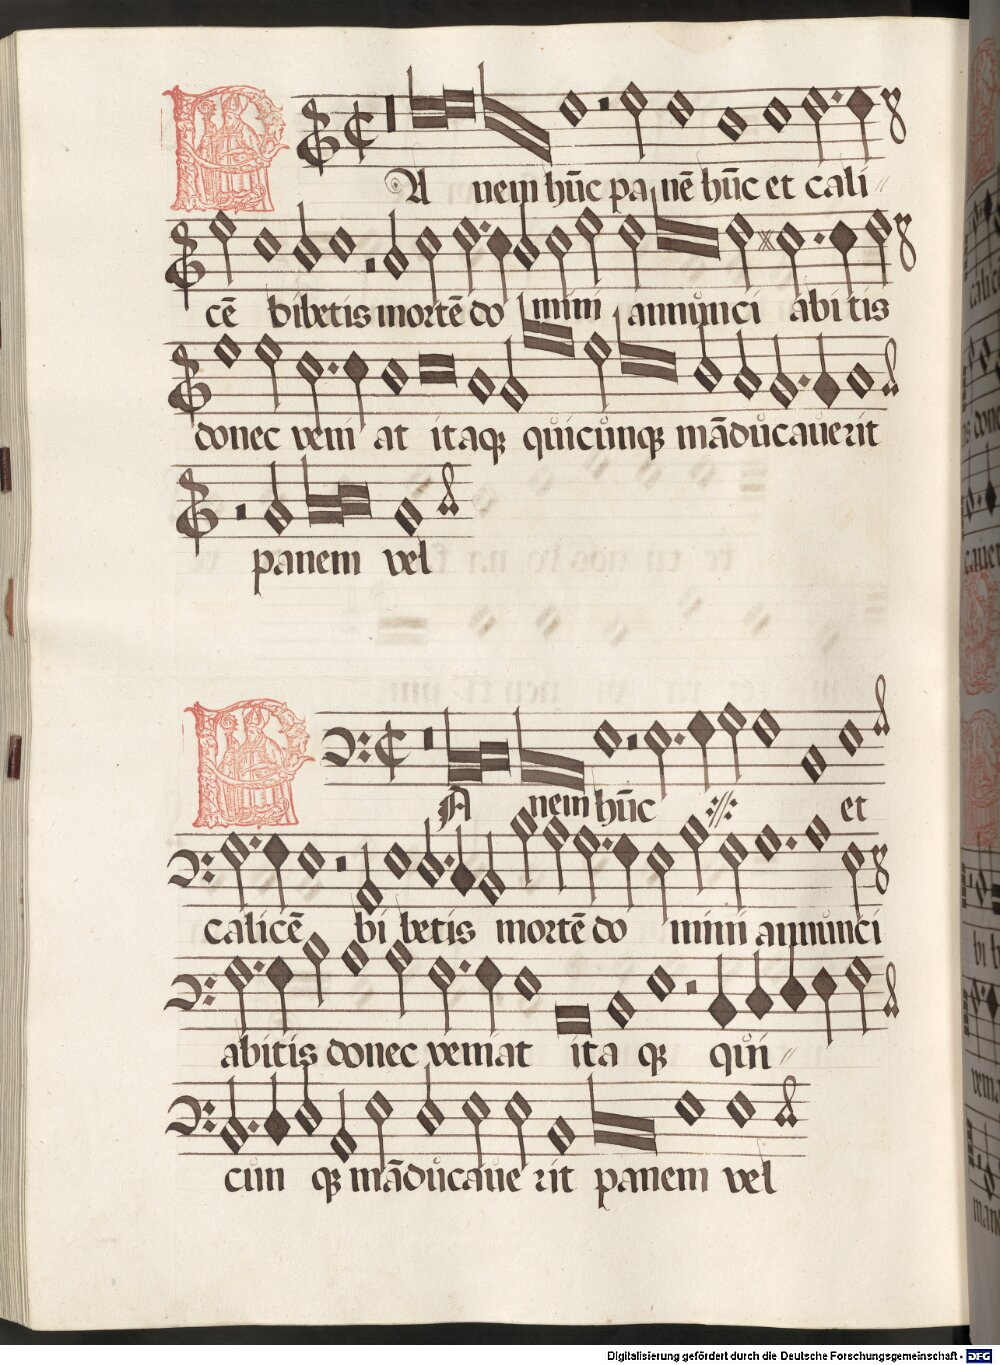 PA nem hūc pa nē hūc et cali〃
cē bibetis mortē do mini annunci abitis
donec veni at itaqꝫ quicunqꝫ māducauerit
panem vel
PA nem hūc ·//· et
calicē bi betis mortē do mini annunci
abitis donec veniat ita qꝫ qui〃
cun qꝫ māducaue rit panem vel
Digitalisierung gefördert durch die Deutsche Forschungsgemeinschaft - DFG